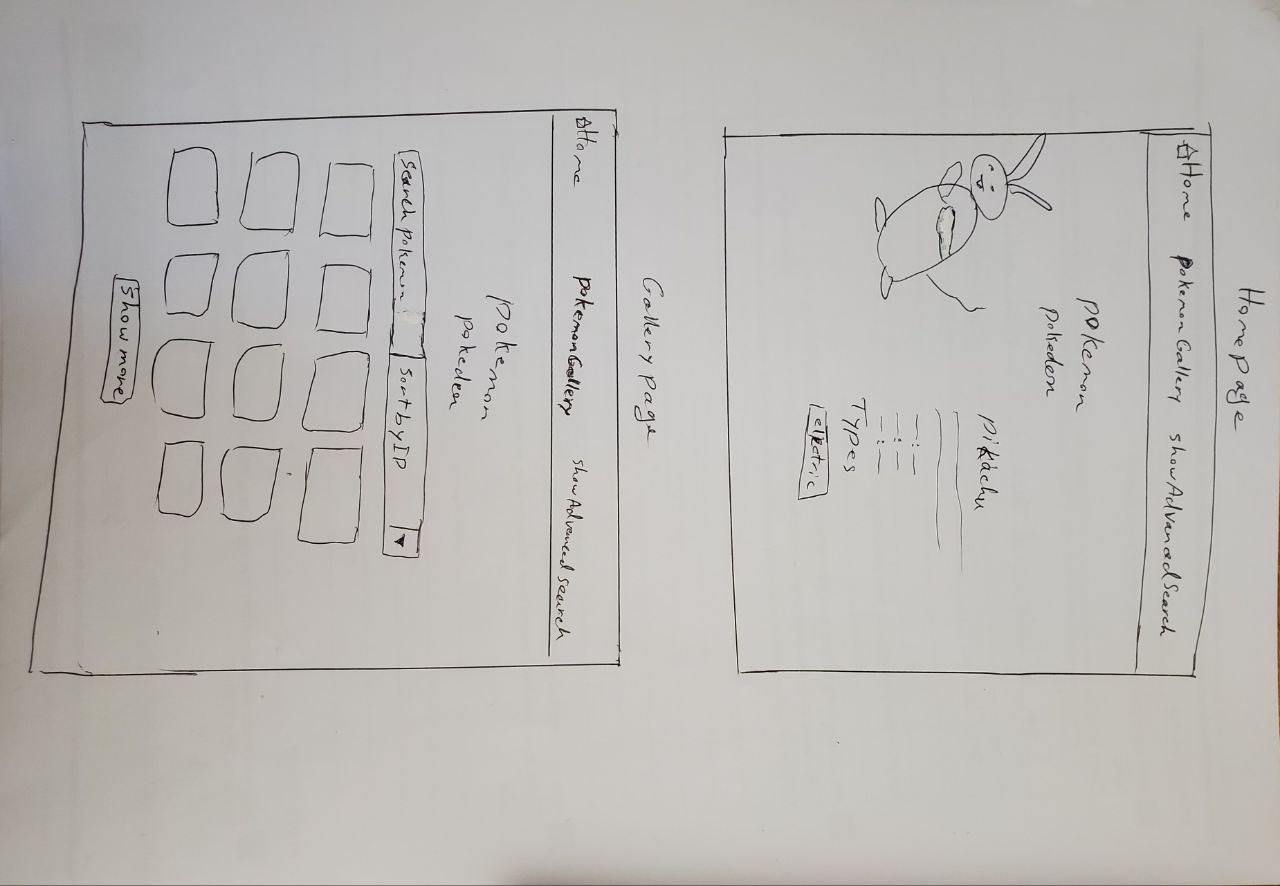 Homepage
Home pokemonGallery showAdvancedSearch
pokemon
pokedex
pikachu
Types
electric
Gallery page
Home pokemonGallery showAdvanced search
pokemon
pokedex
Search pokemon Sort by ID
Show more